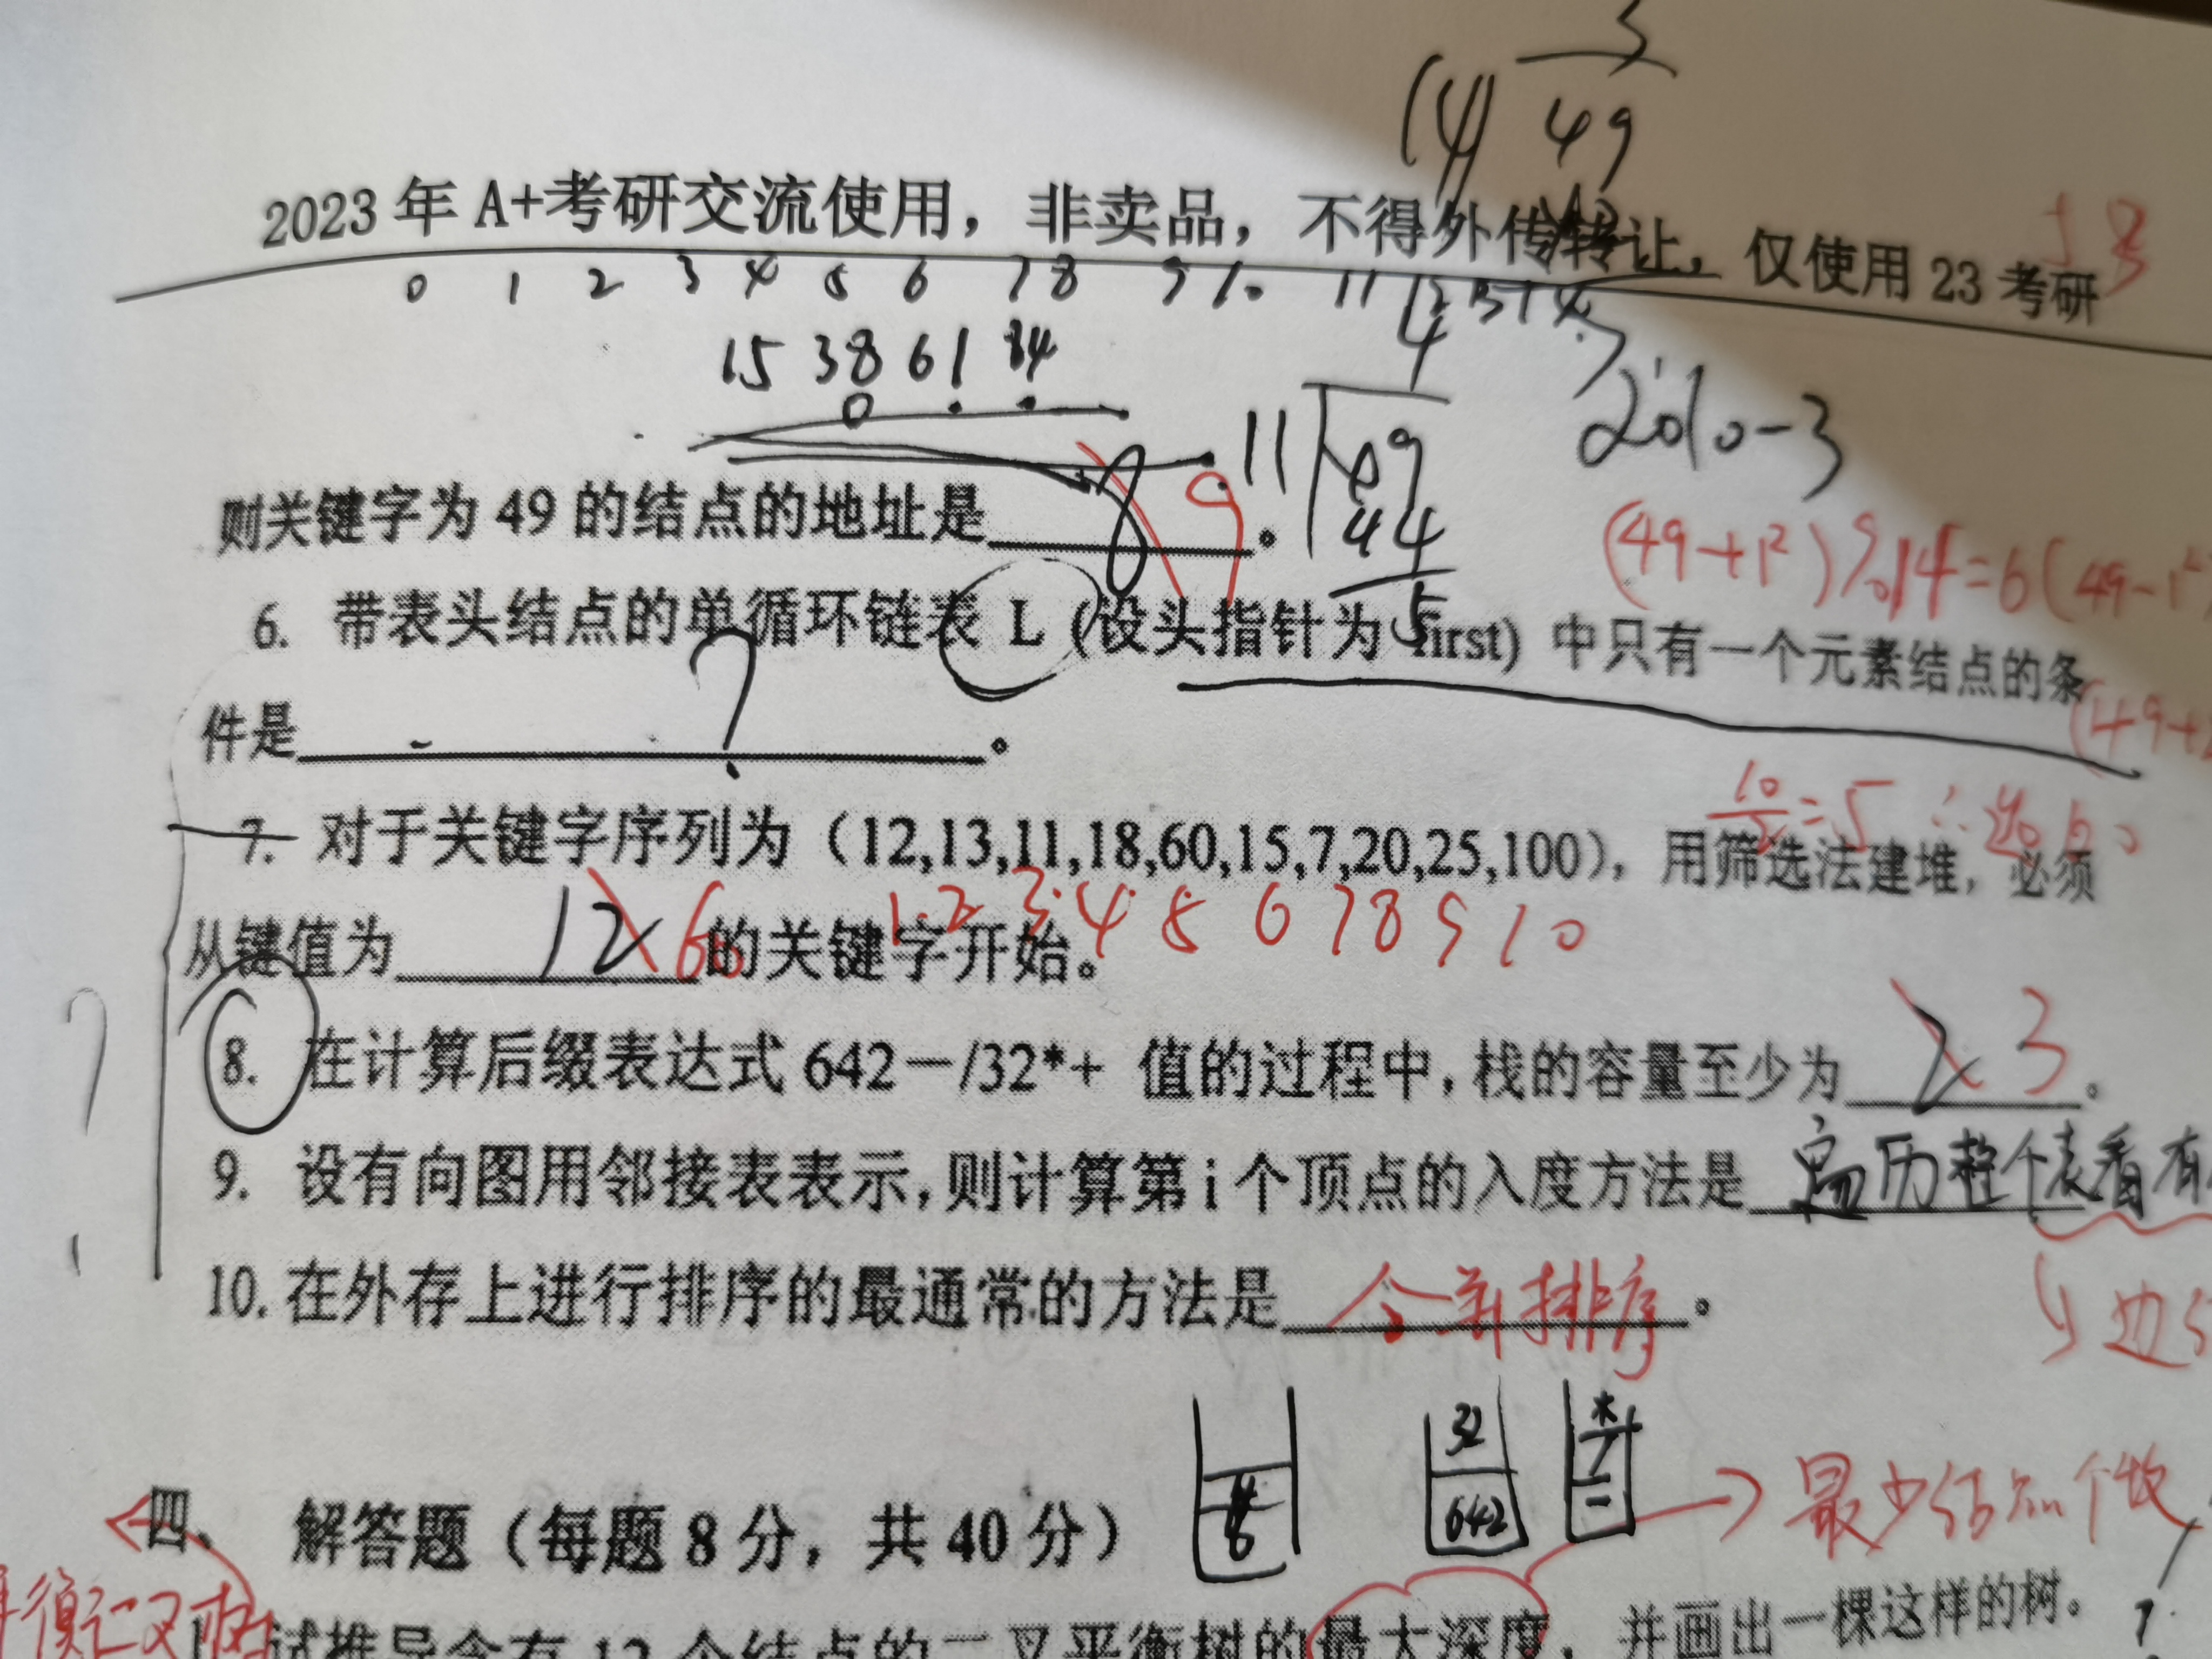 3
(4) 49
2023 年 A+考研交流使用，非卖品，不得外传转让，仅使用 23 考研
0 1 2 3 4 5 6 7 8 9 10 11 12 13 14
15 38 61 84
4
2010-3
11 49
44
5
则关键字为 49 的结点的地址是 8 9 。
(49+1²)%14=6(49-1²
6. 带表头结点的单循环链表 L (设头指针为 first) 中只有一个元素结点的条
件是 ? 。
(49+
10/2=5 ∴选60
7. 对于关键字序列为（12,13,11,18,60,15,7,20,25,100），用筛选法建堆，必须
1 2 3 4 5 6 7 8 9 10
从键值为 12 60 的关键字开始。
8. 在计算后缀表达式 642－/32*+ 值的过程中，栈的容量至少为 2 3 。
9. 设有向图用邻接表表示，则计算第 i 个顶点的入度方法是 遍历整个表看有
10. 在外存上进行排序的最通常的方法是 合并排序 。
边
32
642
6
四、 解答题（每题 8 分，共 40 分）
最少结点个数
衡二叉树
1. 试推导含有 12 个结点的二叉平衡树的最大深度，并画出一棵这样的树。